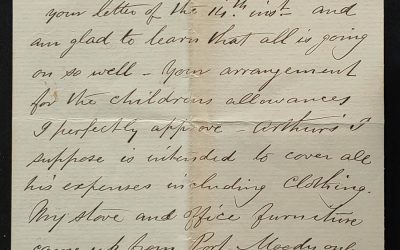 your letter of the 14th inst and
am glad to learn that all is going
on so well - Your arrangement
for the childrens allowances
I perfectly approve - Arthur's I
suppose is intended to cover all
his expenses including Clothing.
My stove and office furniture
came up from Port Moody